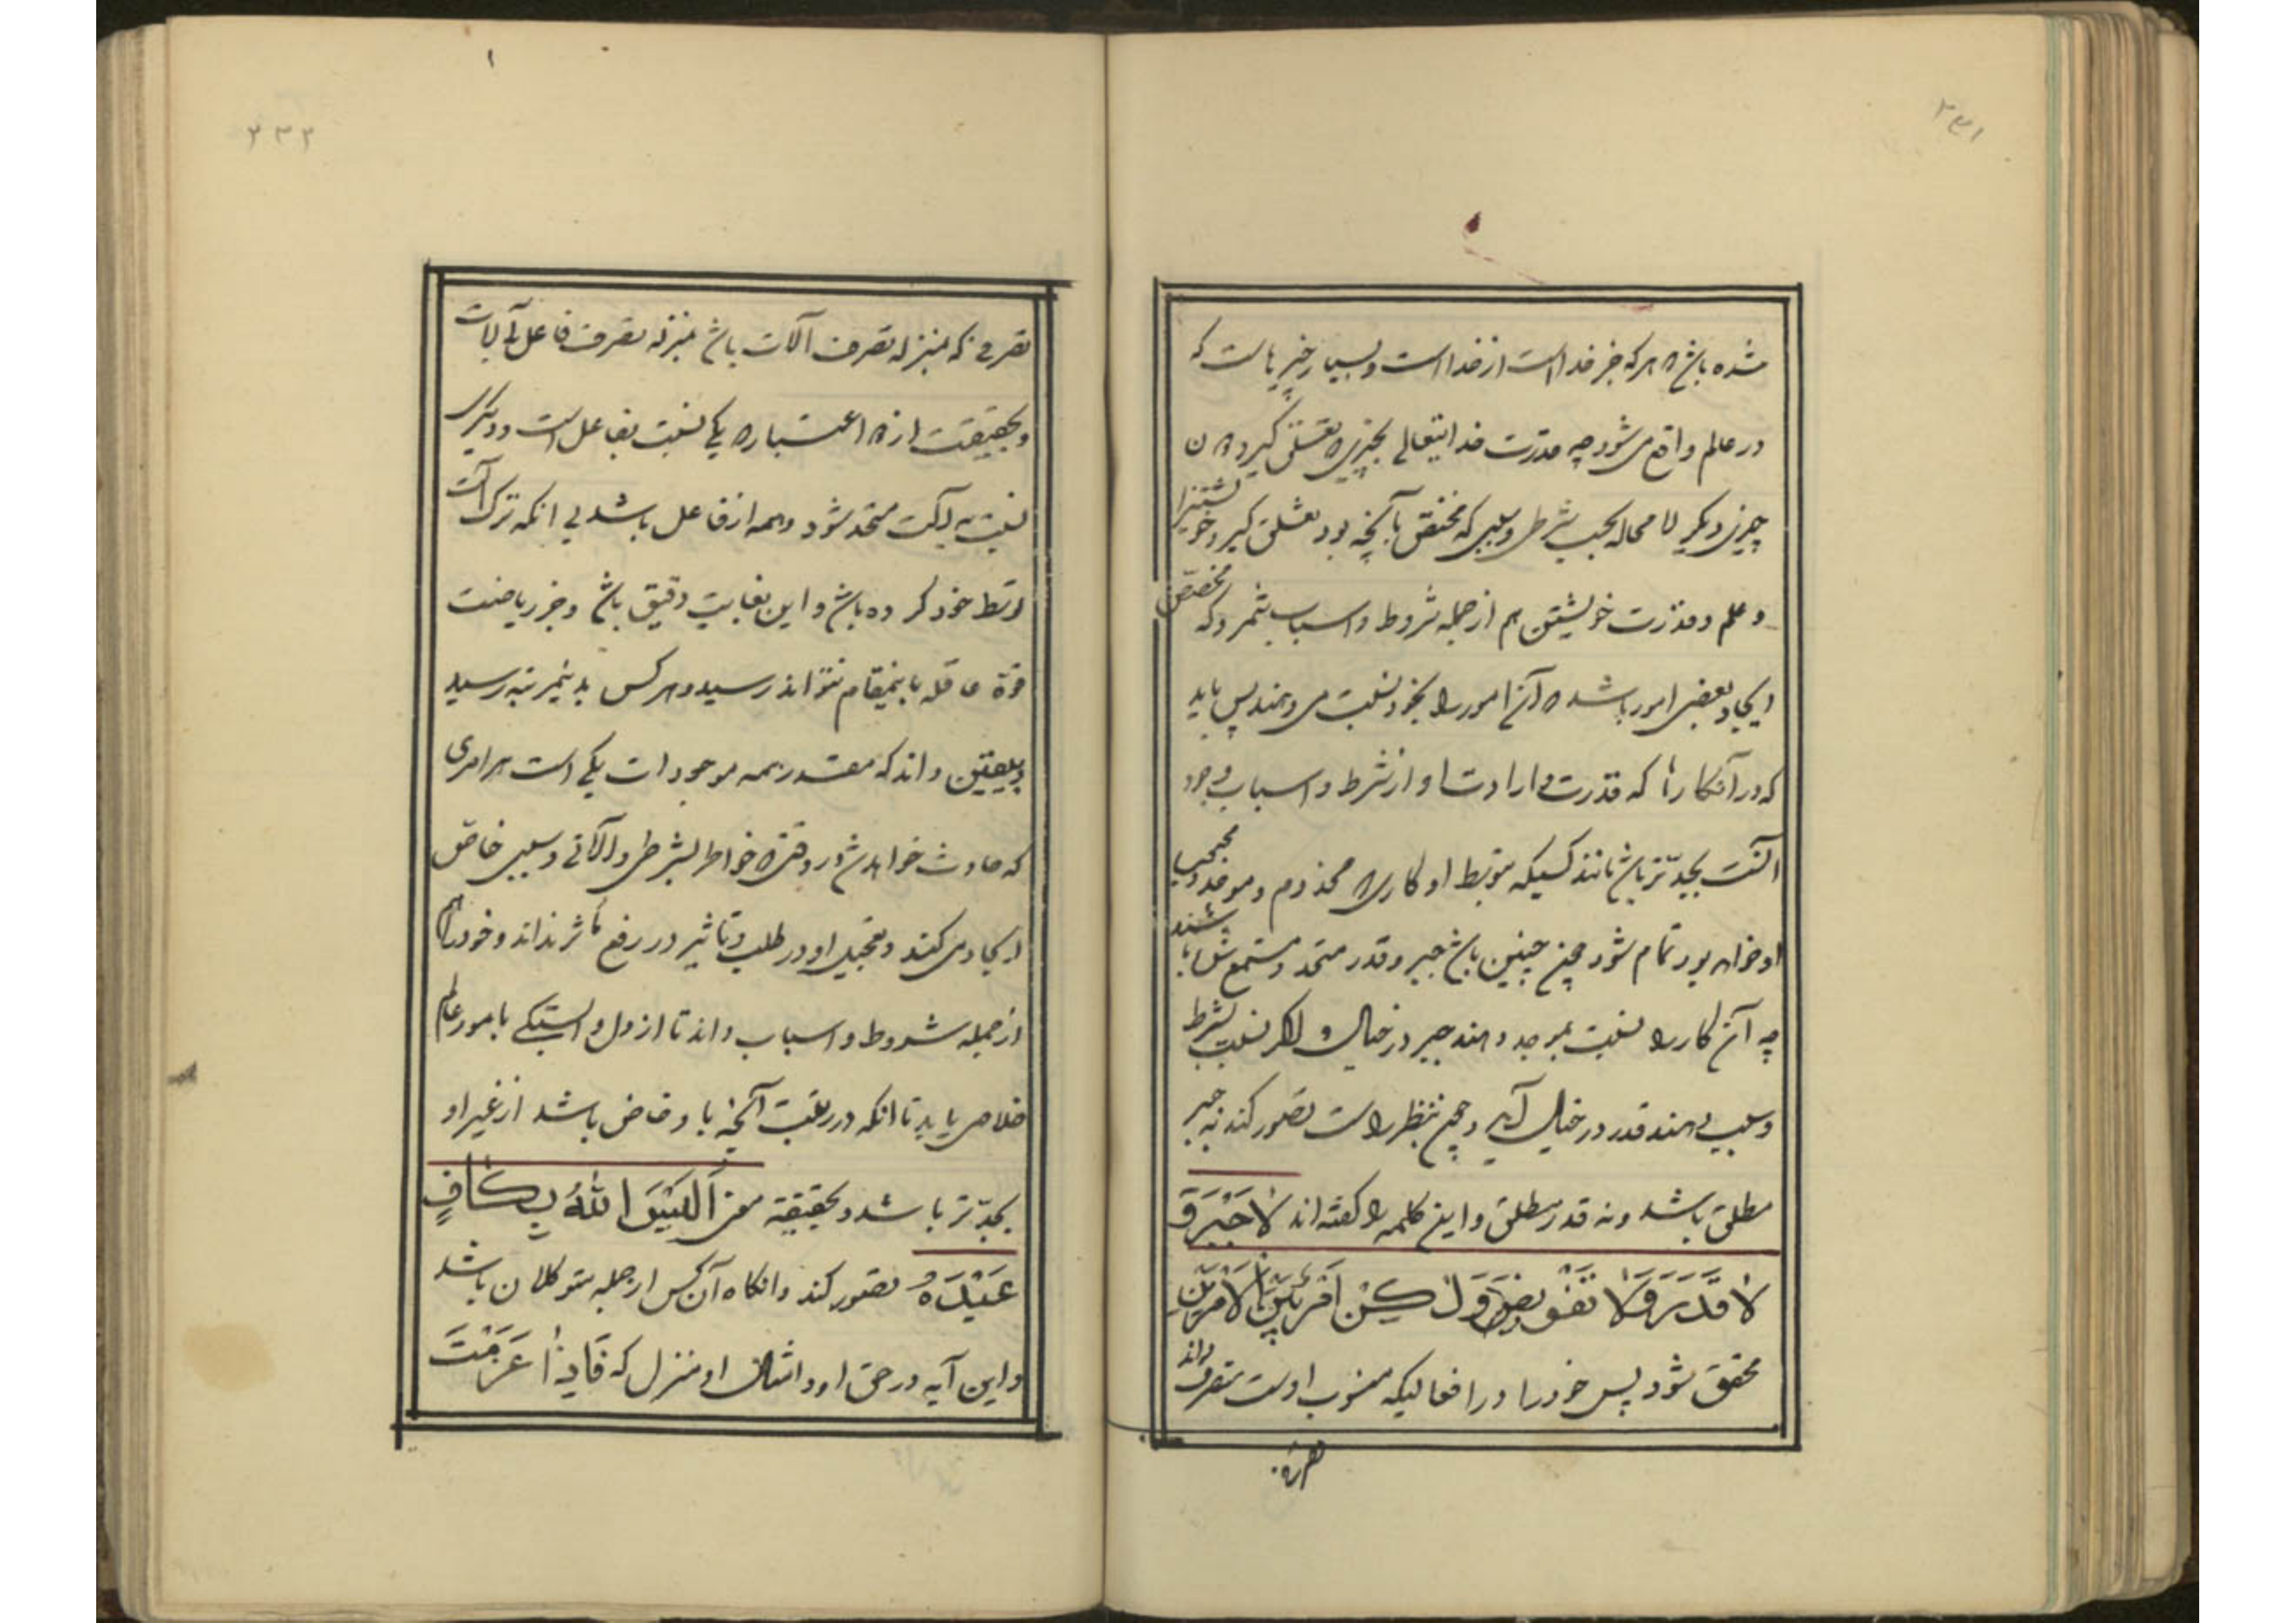 ۲۳۱
شده باشد هر که جز خدا است از خدا است و بسیار چیزهاست که
در عالم واقع می‌شود چه قدرت خدایتعالی بچیزی تعلق گیرد
چیزی دیگر لا محاله بحسب شرطی و سببی که مختص بآنچه بود تعلق گیرد خویشتنرا
و علم و قدرت خویشتن هم از جمله شروط و اسباب شمرد که مخصص
ایجاد بعضی امور باشد آن امور را بخود نسبت می‌دهند پس باید
که در آنکارها که قدرت و ارادت او از شرط و اسباب وجود
آنست بجدتر باشد مانند کسیکه بتوسط او کاری مخدوم و موجد و محبوب
او خواهد بود تمام شود چون چنین باشد جبر و قدر متحد و مستمع شده باشند
چه آن کار را نسبت بموجد دهند جبر در خیال و اگر نسبت بشرط
و سبب دهند قدر در خیال آید و چون بنظر راست تصور کند نه جبر
مطلق باشد و نه قدر مطلق و این کلمه را گفته‌اند لَا جَبْرَ وَ
لَا قَدَرَ وَلَا تَفْویضَ وَلٰکِنْ اَمْرٌ بَیْنَ الْاَمْرَیْنِ
محقق شود پس خود را در افعالیکه منسوب اوست متصرف داند
تصرفی
۲۳۲
تصرفی که بمنزله تصرف آلات باشد نه بمنزله تصرف فاعل بآلات
و بحقیقت از اعتبار یکی نسبت بفاعل است و دیگری
نسبت به آلت متحد شود و همه از فاعل باشد بی آنکه ترک آلت
توسط خود کرده باشد و این بغایت دقیق باشد و جز ریاضت
قوة عاقله باینمقام نتواند رسید و هر کس بدینمرتبه رسید
بیقین داند که مقدر همه موجودات یکی است هر امری
که حادث خواهد شد در وقتی خواطر بشرطی و آلاتی و سببی خاص
ایجاد می‌کند و تعجیل او در طلب و تاثیر در رفع تاثر نداند و خود را هم
از جمله شروط و اسباب داند تا از دل وابستگی بامور عالم
خلاص یابد تا آنکه در ترتیب آنچه باو خاص باشد از غیر او
بجدتر باشد و بحقیقة معنی اَلَیْسَ اللّٰهُ بِکَافٍ
عَبْدَهُ تصور کند و آنگاه آن کس از جمله متوکلان باشد
و این آیه در حق او و امثال او منزل که فَاِذٰا عَزَمْتَ